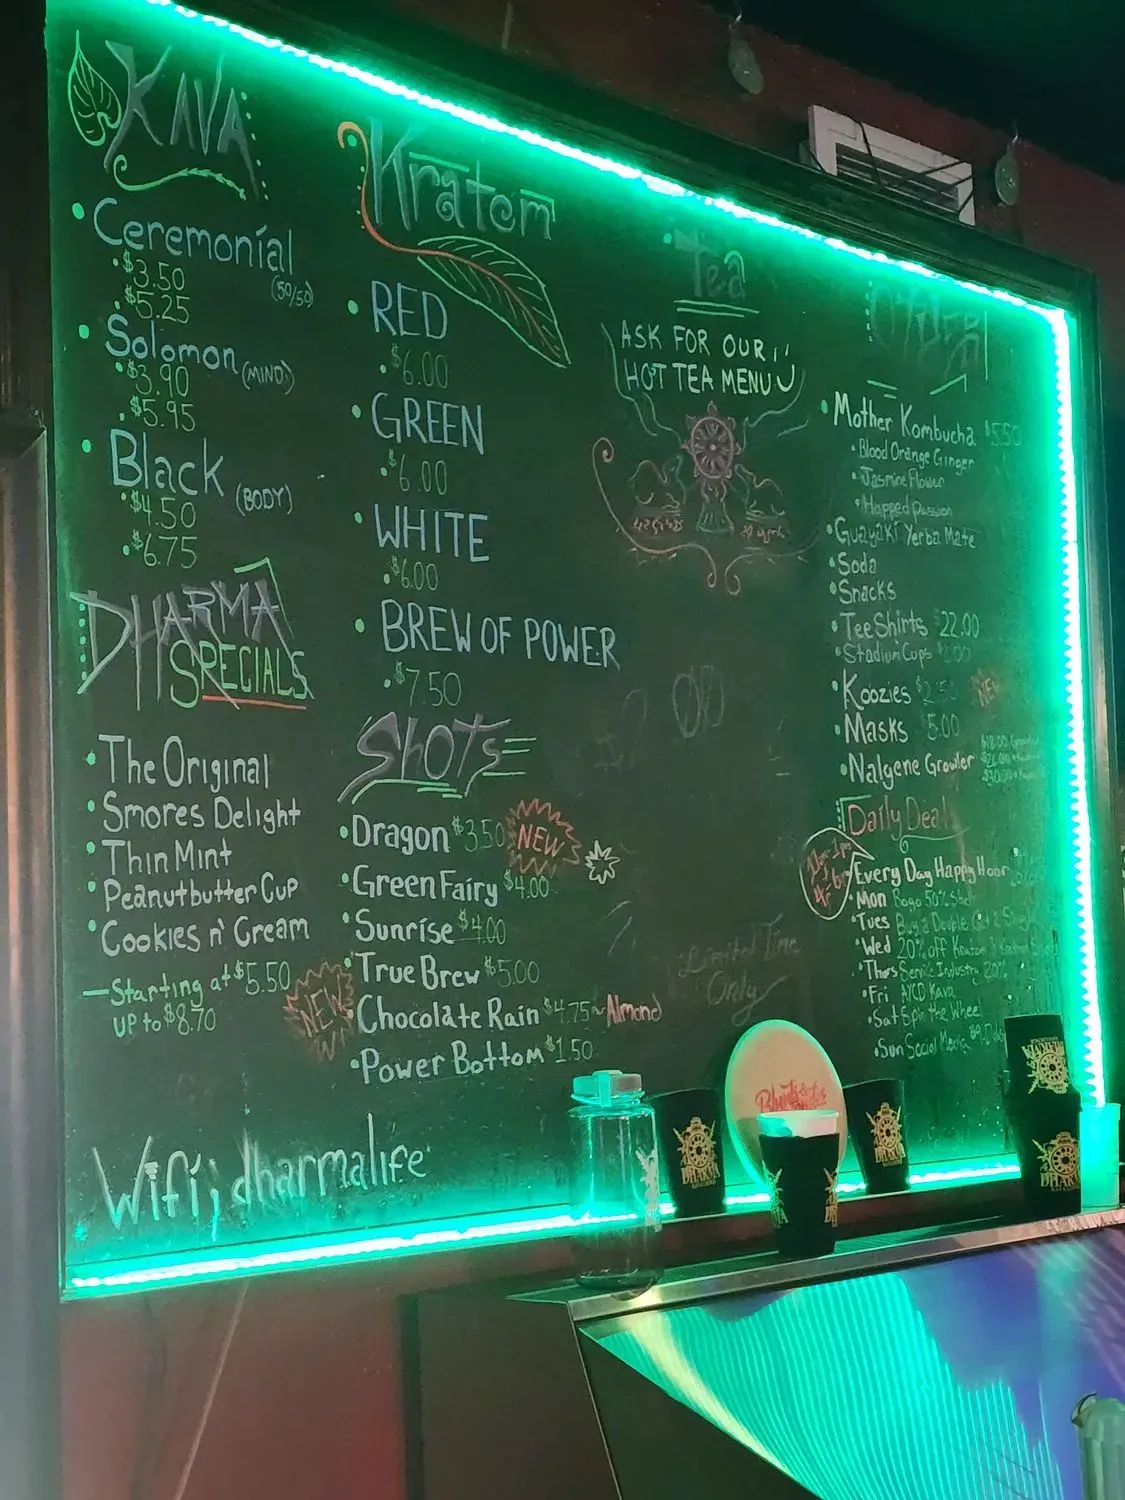 Kava
Ceremonial
$3.50
(50/50)
$5.25
Solomon (MIND)
$3.90
$5.95
Black (BODY)
$4.50
$6.75
DHARMA
SPECIALS
The Original
Smores Delight
Thin Mint
Peanutbutter Cup
Cookies n' Cream
Starting at $5.50
UP to $8.70
Wifi; dharmalife
Kratom
RED
$6.00
GREEN
$6.00
WHITE
$6.00
BREW OF POWER
$7.50
Shots
Dragon $3.50 NEW
Green Fairy $4.00
Sunrise $4.00
True Brew $5.00
NEW Chocolate Rain $4.75 ~Almond
Power Bottom $1.50
Tea
ASK FOR OUR
HOT TEA MENU
Limited Time
Only
Other
Mother Kombucha $5.50
Blood Orange Ginger
Jasmine Flower
Hopped Passion
Guayaki Yerba Mate
Soda
Snacks
Tee Shirts $22.00
Stadium Cups $2.00
Koozies $2.50 NEW
Masks 5.00
Nalgene Growler
Daily Deal
Every Day Happy Hour
Mon Bogo 50% Shell
Tues Buy a Double Get 2
Wed 20% off Kratom
Thurs Service Industry 20%
Fri AKD Kava
Sat Spin the Wheel
Sun Social Media
DHARMA
DHARMA